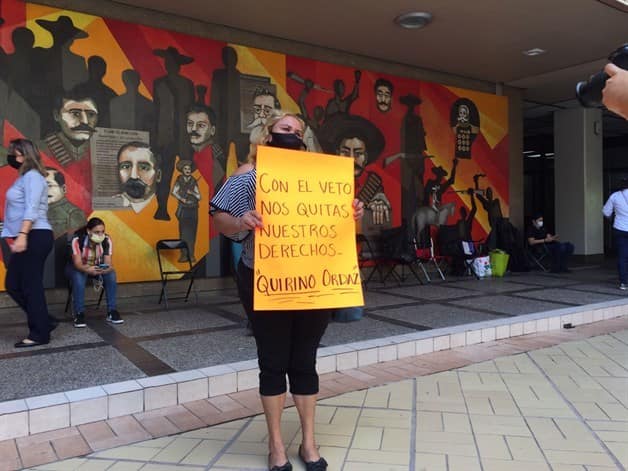 CON EL VETO
NOS QUITAS
NUESTROS
DERECHOS.
"QUIRINO ORDAZ"